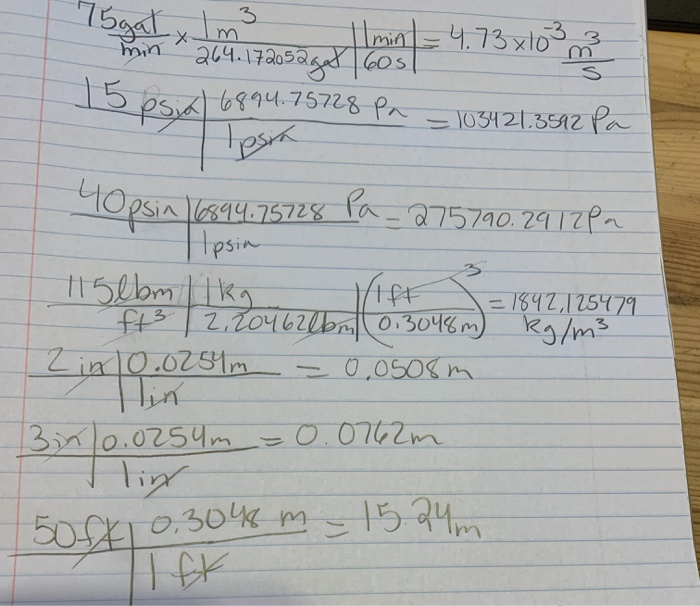 75 gal/min × 1 m³/264.172052 gal | 1 min/60 s | = 4.73 × 10⁻³ m³/s
15 psia | 6894.75728 Pa / 1 psia = 103421.3592 Pa
40 psia | 6894.75728 Pa / 1 psia = 275790.2912 Pa
115 lbm/ft³ | 1 kg/2.20462 lbm | (1 ft/0.3048 m)³ = 1842.125479 kg/m³
2 in | 0.0254 m / 1 in = 0.0508 m
3 in | 0.0254 m / 1 in = 0.0762 m
50 ft | 0.3048 m / 1 ft = 15.24 m